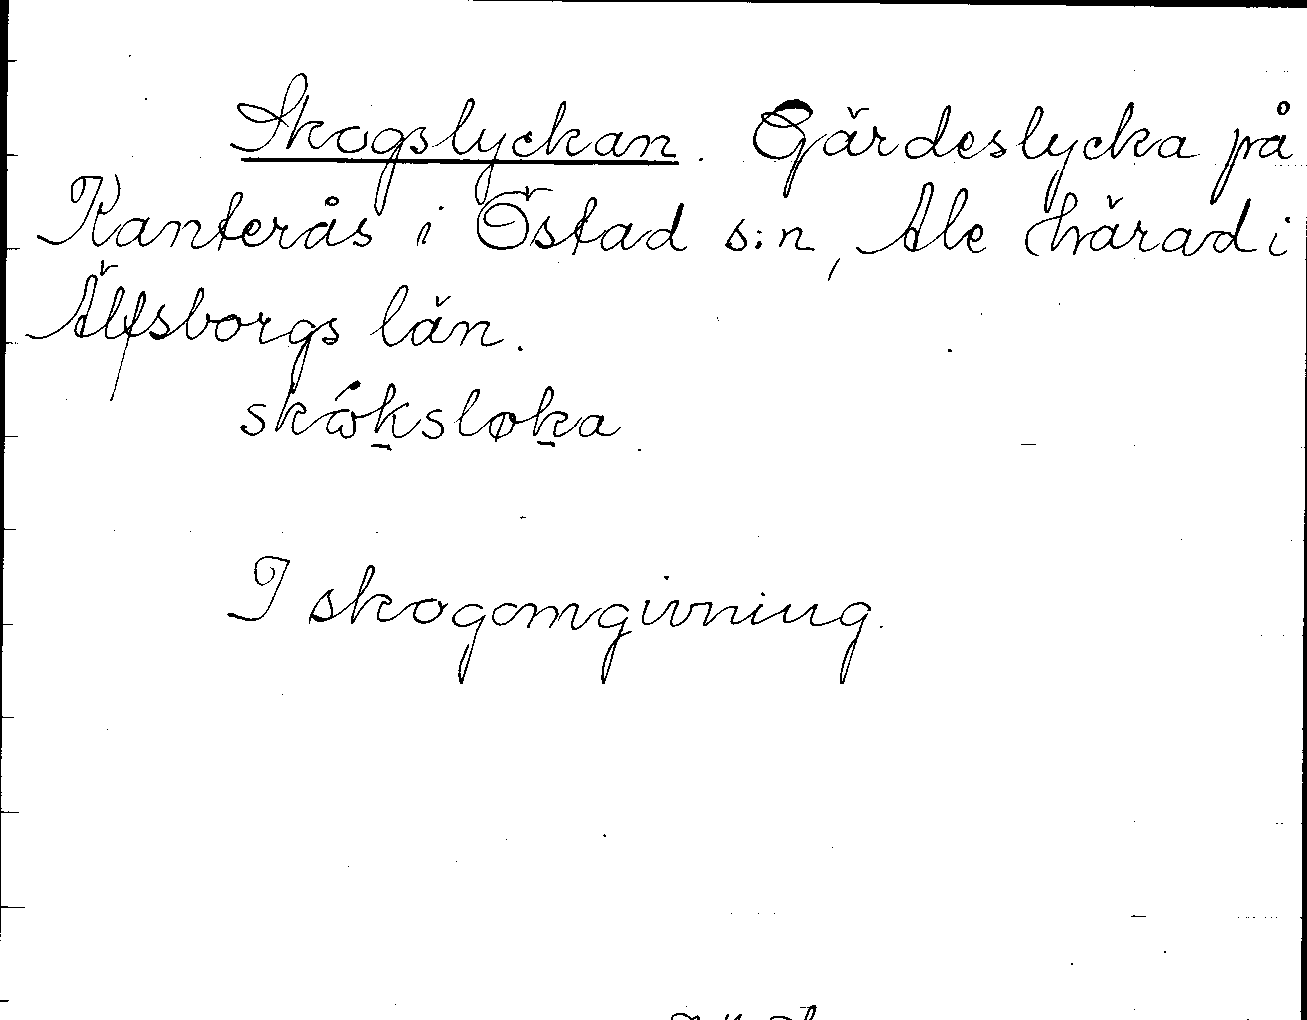 Skogslyckan. Gärdeslycka på
Kanterås i Östad s:n, Ale härad i
Älfsborgs län.
skɷ́ksløka
I skogomgivning.